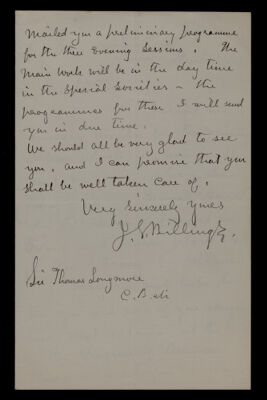 mailed you a preliminary programme
for the three Evening Sessions. The
main work will be in the day time
in the Special Societies - the
programmes for these I will send
you in due time.
We should all be very glad to see
you, and I can promise that you
shall be well taken care of.
Very Sincerely Yours
J. S. Billings.
Sir Thomas Longmore
C.B. etc